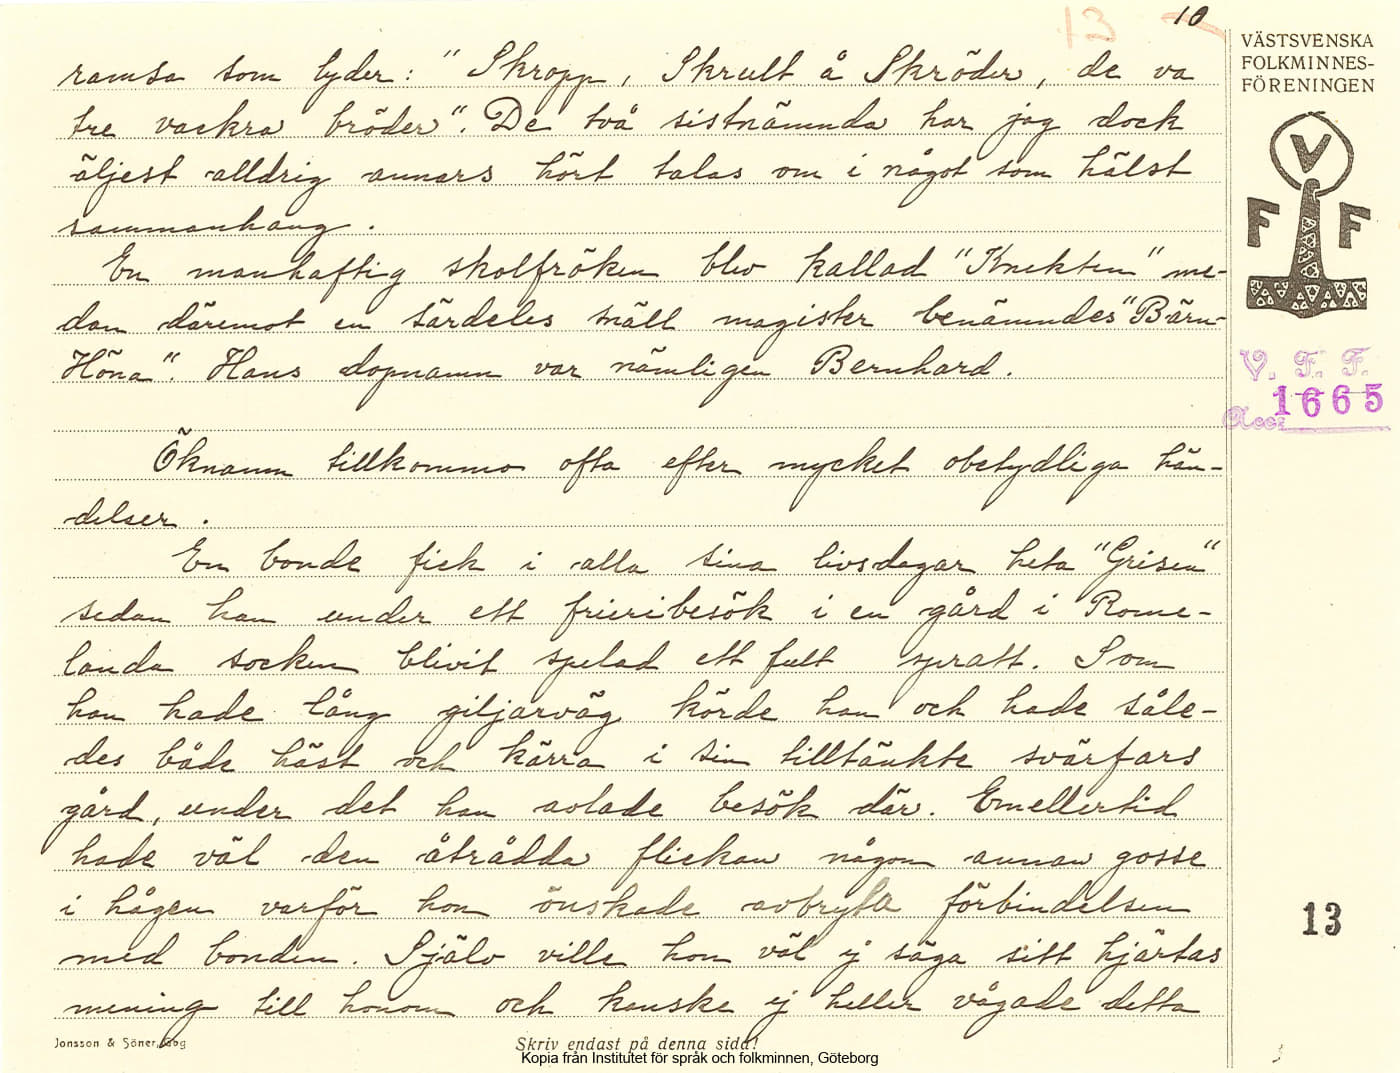 13 10
VÄSTSVENSKA
FOLKMINNES-
FÖRENINGEN
V
F F
V. F. F.
Acc: 1665
ramsa som lyder: "Skropp, Skrult å Skröder, de va
tre vackra bröder". De två sistnämnda har jag dock
äljest alldrig annars hört talas om i något som hälst
sammanhang.
En manhaftig skolfröken blev kallad "Knekten" me-
dan däremot en särdeles snäll magister benämndes "Bärn-
Höna". Hans dopnamn var nämligen Bernhard.
Öknamn tillkommo ofta efter mycket obetydliga hän-
delser.
En bonde fick i alla sina livsdagar heta "Grisen"
sedan han under ett frieribesök i en gård i Rome-
landa socken blivit spelad ett fult spratt. Som
han hade lång giljarväg körde han och hade såle-
des både häst och kärra i sin tilltänkte svärfars
gård, under det han avlade besök där. Emellertid
hade väl den åtrådda flickan någon annan gosse
i hågen varför hon önskade avbryta förbindelsen
med bonden. Själv ville hon väl ej säga sitt hjärtas
mening till honom och kanske ej heller vågade detta
13
Jonsson & Söner, Gbg
Skriv endast på denna sida!
Kopia från Institutet för språk och folkminnen, Göteborg